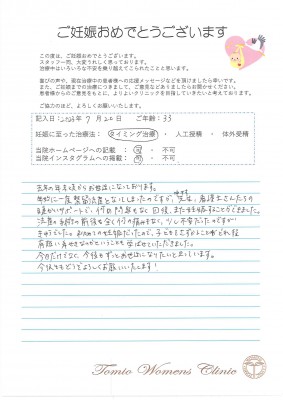 ご妊娠おめでとうございます
この度は、ご妊娠おめでとうございます。
スタッフ一同、大変うれしく思っております。
治療中はいろいろな不安を乗り越えてこられたことと思います。
喜びの声や、現在治療中の患者様への応援メッセージなどを頂けましたら幸いです。
また、ご妊娠までの治療につきまして、ご意見などありましたらお聞かせください。
患者様からのご意見をもとに、よりよいクリニックを目指していきたいと考えております。
ご協力のほど、よろしくお願いいたします。
記入日:2023年 7月20日 ご年齢: 33
妊娠に至った治療法: タイミング治療 ・ 人工授精 ・ 体外受精
当院ホームページへの記載 : 可 ・ 不可
当院インスタグラムへの掲載 : 可 ・ 不可
去年の年末頃からお世話になっております。
年始に一度稽留流産となりましたのですが、先生、看護士さんたちの
暖かいサポートで、何の問題もなく回復、また妊娠することができました。
流産の手術の前後も全く何の痛みもなく、少し不安だったのですが
初めての妊娠だったので、子どもをさずかることがどれ程
有難い幸せなのかということも学ばせていただきました。
今回だけでなく、今後もずっとお世話になりたいと思います。
今後ともどうぞよろしくお願いいたします!
Tomio Womens Clinic